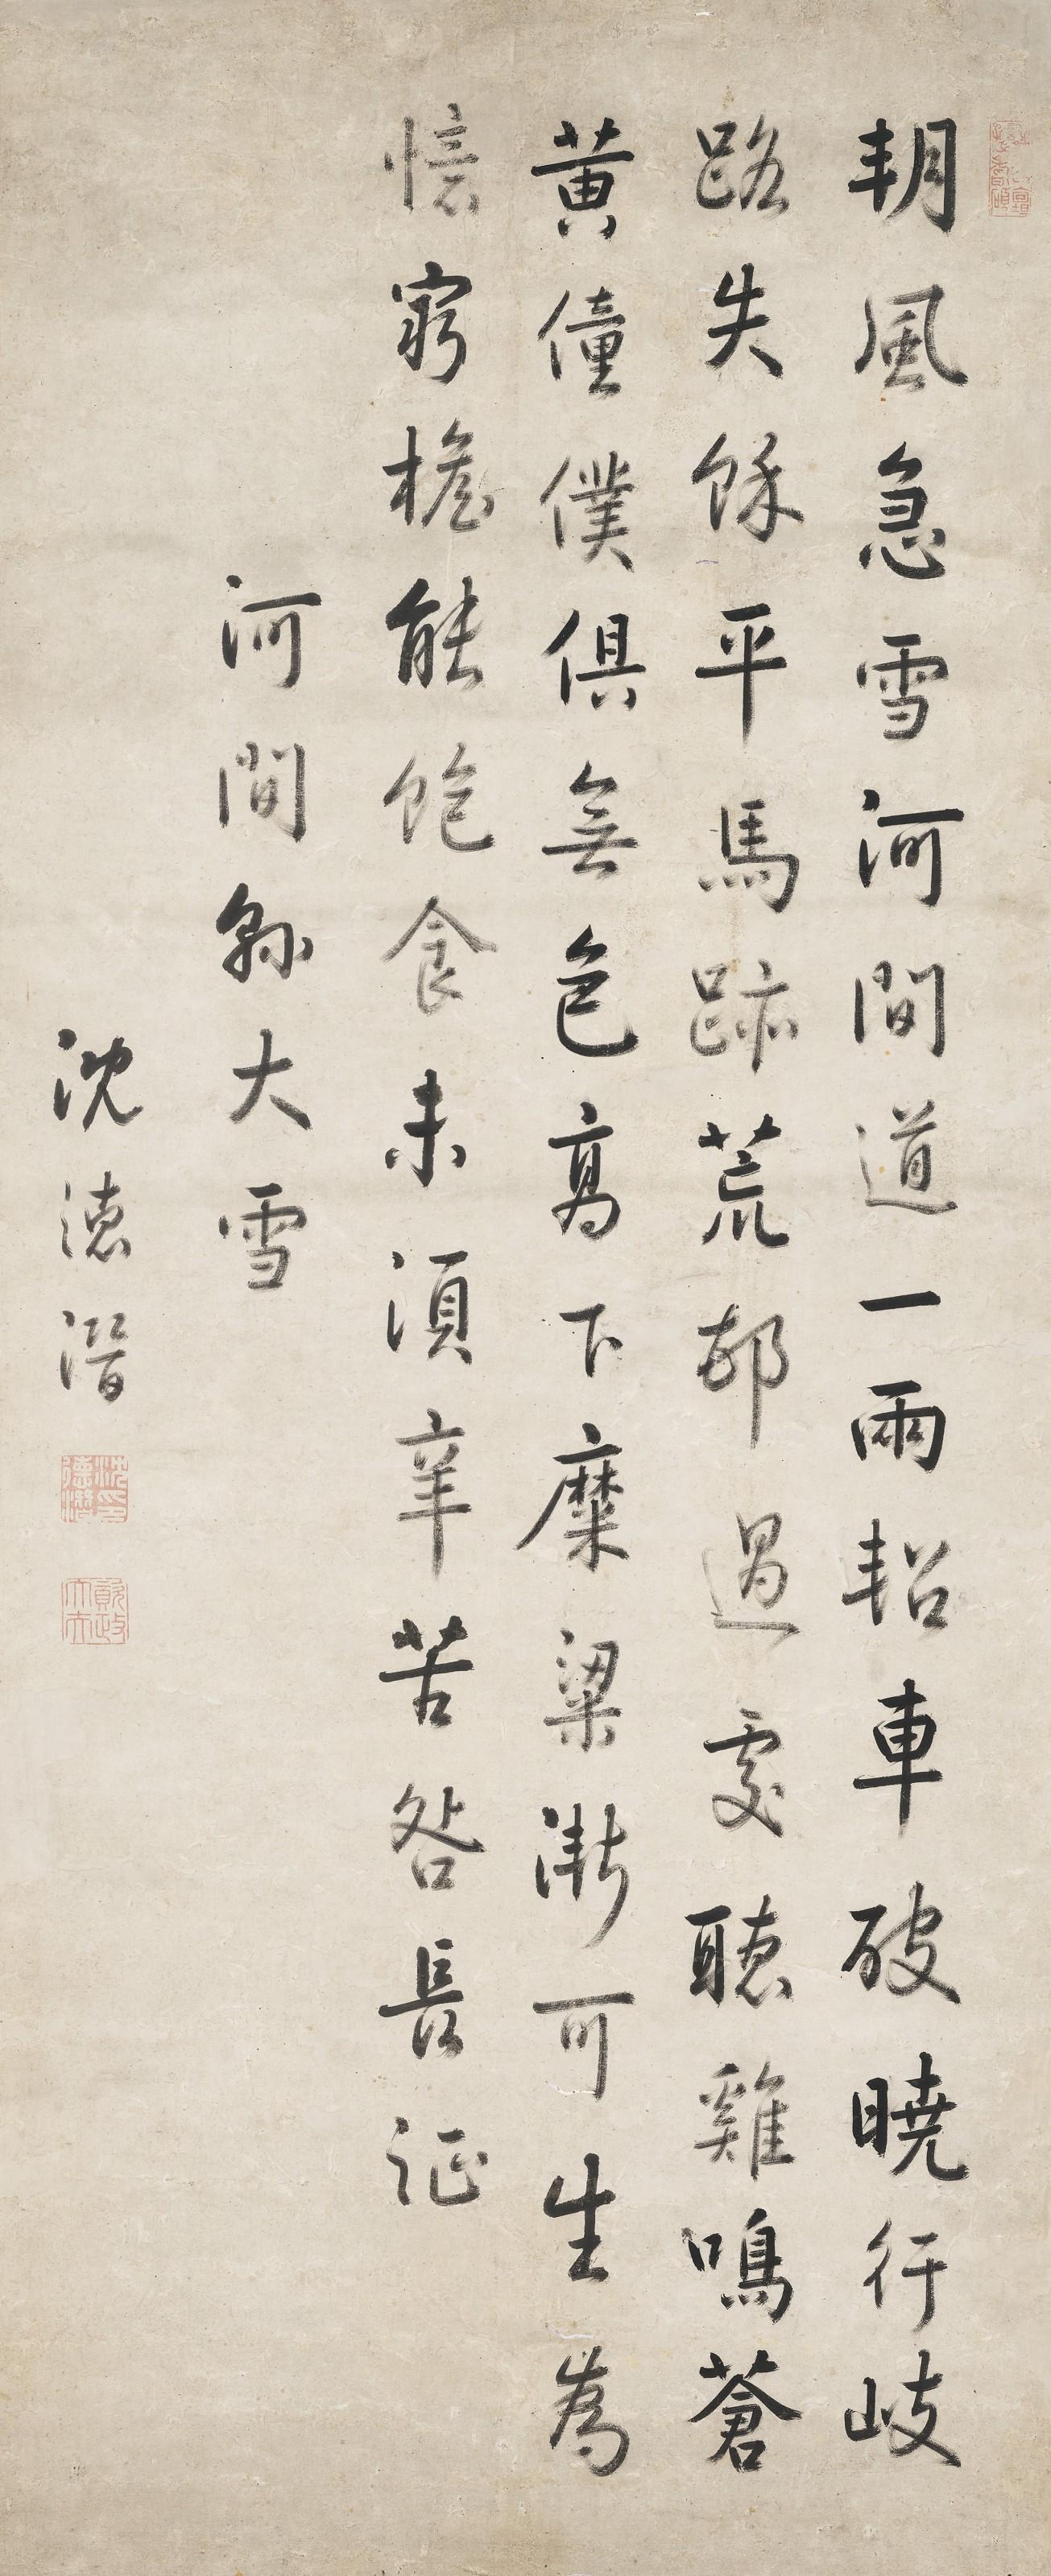 朔風急雪河間道一兩軺車破曉行岐
路失餘平馬跡荒邨過處聽雞鳴蒼
黃僮僕俱無色高下糜粱漸可生為
憶窮檐能飽食未須辛苦咎長征
河間縣大雪
沈德潛
沈印德潛